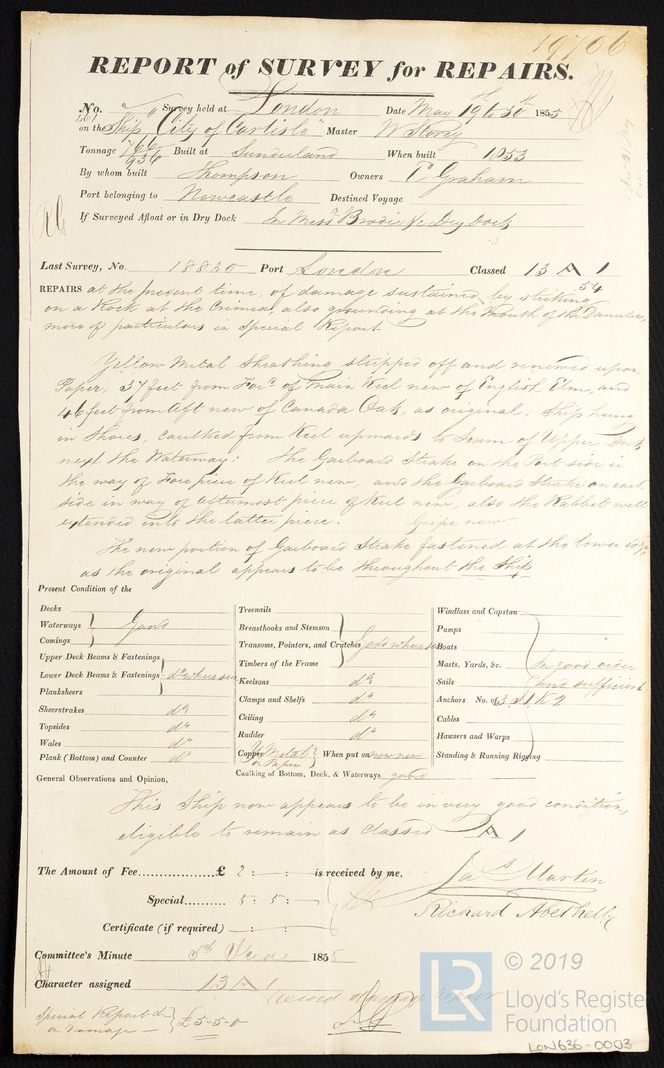 19706
REPORT of SURVEY for REPAIRS.
No. Survey held at London Date May 19 to 30th 1855
on the Ship "City of Carlisle" Master W Storey
Tonnage 766 936 Built at Sunderland When built 1853
By whom built Thompson Owners Graham
Port belonging to Newcastle Destined Voyage
If Surveyed Afloat or in Dry Dock In Messrs Brodie &c Dry Dock
Last Survey, No. 18830 Port London Classed 13 A 1
54
REPAIRS at the present time, of damage sustained by striking
on a Rock at the Crimea, also grounding at the Mouth of the Danube,
more of particulars in Special Report
Yellow Metal Sheathing stripped off and renewed upon
Paper, 37 feet from of Main Keel new of English Elm, and
46 feet from Aft new of Canada Oak, as original. Ship hung
in Shores, caulked from Keel upwards to Seam of Upper Deck
next the Waterway: The Garboard Strake on the Port side in
the way of Fore piece of Keel new, and the Garboard Strake on each
side in way of aftermost piece of Keel new, also the Rabbet well
extended into the latter piece. Gripe new
The new portion of Garboard Strake fastened at the lower edge,
as the original appears to be throughout the Ship
Present Condition of the
Decks
Waterways } Good
Comings
Upper Deck Beams & Fastenings
Lower Deck Beams & Fastenings } do where seen
Planksheers
Sheerstrakes do
Topsides do
Wales do
Plank (Bottom) and Counter do
Treenails
Breasthooks and Stemson
Transoms, Pointers, and Crutches } Good where seen
Timbers of the Frame
Keelsons do
Clamps and Shelfs do
Ceiling do
Rudder do
Copper Y Metal on Paper } When put on now new
Caulking of Bottom, Deck, & Waterways good
Windlass and Capstan
Pumps
Boats
Masts, Yards, &c. In good order
Sails and sufficient
Anchors No. of 3. S1. K2
Cables
Hawsers and Warps
Standing & Running Rigging
General Observations and Opinion,
This Ship now appears to be in very good condition,
eligible to remain as classed A 1
The Amount of Fee............... £ 2 : - : - is received by me,
Jas Martin
Special......... 5 : 5 : -
Richard Abethell
Certificate (if required) - : - : -
Committee's Minute 5th June 1855
Character assigned 13 A 1
record damage repair
Special Report
on damage - } £5-5-0
© 2019
LR
Lloyd's Register
Foundation
LON636-0003